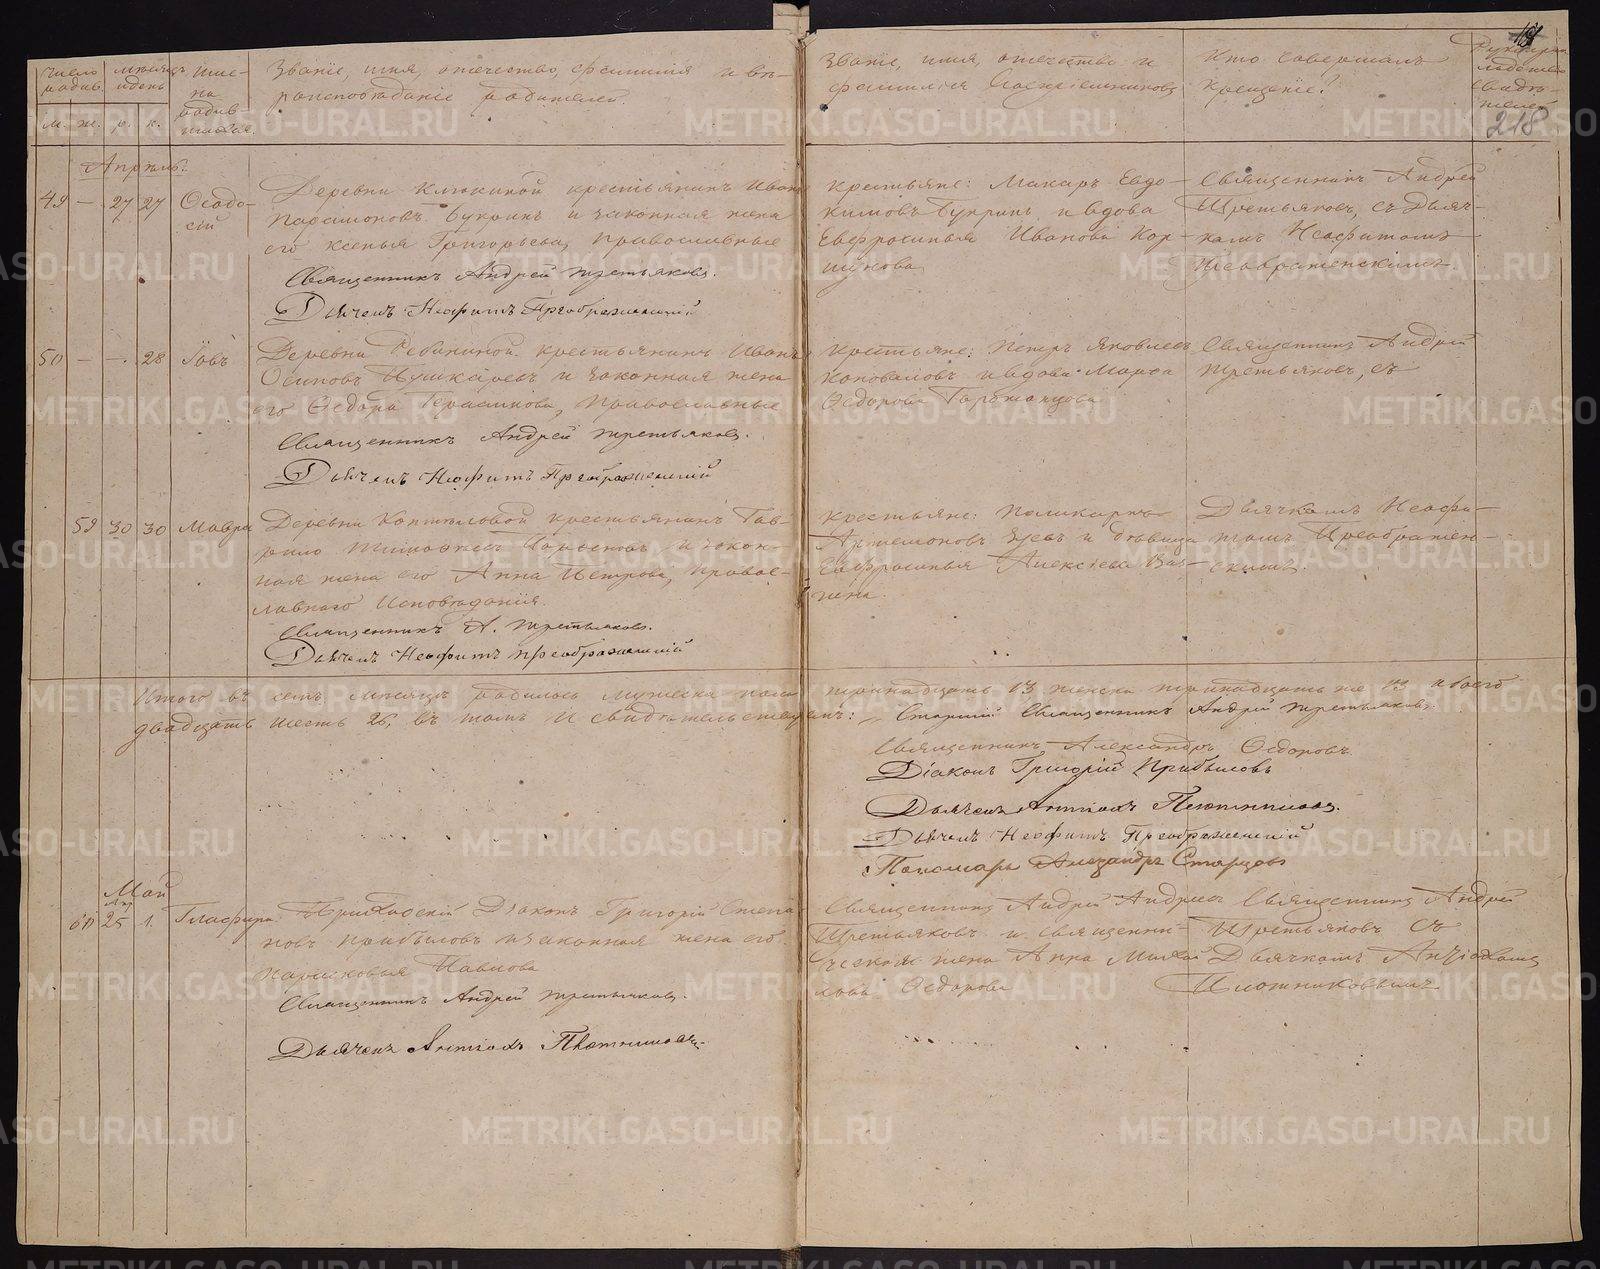 Число родив.
Мѣсяцъ и день
Име-на родив-шихся.
Званіе, имя, отечество, фамилія и вѣ-
роисповѣданіе родителей.
Званіе, имя, отечество и
фамилія Воспріемниковъ
Кто совершалъ
Крещеніе?
218
м. ж. р. к.
Апрѣль.
49 — 27 27 Ѳеодо-
сій
Деревни Клюкиной крестьянинъ Иванъ
Парамоновъ Букринъ и законная жена
его Ксенья Григорьева, православные
Священникъ Андрей Третьяковъ.
Дьячекъ Неофитъ Преображенскій
Крестьяне: Макаръ Евдо-
кимовъ Букринъ и вдова
Евфросинья Иванова Кор-
шунова
Священникъ Андрей
Третьяковъ, съ Дьяч-
комъ Неофитомъ
Преображенскимъ.
50 — — 28 Іовъ
Деревни Ребининой крестьянинъ Иванъ
Осиповъ Пушкаревъ и законная жена
его Ѳедора Герасимова, православные
Священникъ Андрей Третьяковъ.
Дьячекъ Неофитъ Преображенскій
Крестьяне: Петръ Яковлевъ
Коноваловъ и вдова Марѳа
Ѳедорова
Священникъ Андрей
Третьяковъ, съ
59 30 30 Мавра
Деревни Коптяловой крестьянинъ Гав-
рило Тимофеевъ и закон-
ная жена его Анна Петрова, правос-
лавнаго Исповѣданія.
Священникъ А. Третьяковъ.
Дьячекъ Неофитъ Преображенскій
Крестьяне: Поликарпъ
Артемоновъ и дѣвица
Евфросинья Алексіева
Дьячкомъ Неофи-
томъ Преображен-
скимъ.
Итого въ семъ мѣсяцѣ родилось мужеска пола тринадцать 13 женска тринадцать же 13 а всего
двадцать шесть 26, въ томъ и свидѣтельствуемъ: Старшій Священникъ Андрей Третьяковъ.
Священникъ Александръ Ѳедоровъ.
Діаконъ Григорій Прибыловъ
Дьячекъ Антіохъ Плотниковъ.
Дьячекъ Неофитъ Преображенскій
Пономарь Александръ Старцовъ
Май
Апр
60 25 1. Глафира.
Приходскій Діаконъ Григорій Степа-
новъ Прибыловъ и законная жена его
Парасковья Павлова
Священникъ Андрей Третьяковъ.
Дьячекъ Антіохъ Плотниковъ.
Священникъ Андрей Андреевъ
Третьяковъ и священни-
ческая жена Анна Михай
лова Ѳедорова
Священникъ Андрей
Третьяковъ съ
Дьячкомъ Антіохомъ
Плотниковымъ.
METRIKI.GASO-URAL.RU